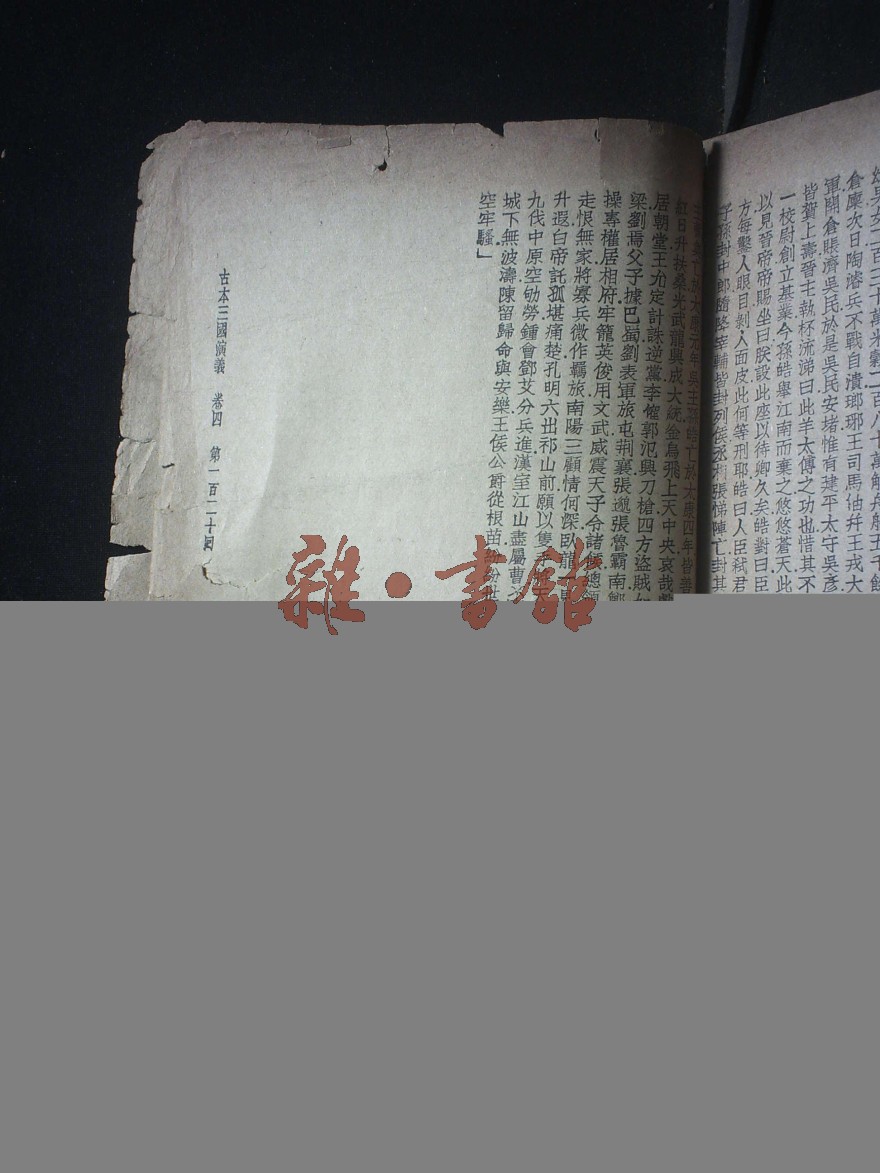 倉廩次日陶濬兵不戰自潰瑯琊王司馬伷幷王戎大
軍開倉賑濟吳民於是吳民安堵惟有建平太守吳彥
皆賀上壽晉主執杯流涕曰此羊太傅之功也惜其不
一校尉創立基業今孫皓舉江南而棄之悠悠蒼天此
以見晉帝帝賜坐曰朕設此座以待卿久矣皓對曰臣
方每鑿人眼目剝人面皮此何等刑耶皓曰人臣弒君
子孫封中郎隨降宰輔皆封列侯丞相張悌陣亡封其
紅日升扶桑光武龍興成大統金烏飛上天中央哀哉獻
居朝堂王允定計誅逆黨李傕郭氾興刀槍四方盜賊如
梁劉焉父子據巴蜀劉表軍旅屯荆襄張邈張魯霸南鄭
操專權居相府牢籠英俊用文武威震天子令諸侯總領
走恨無家將寡兵微作羈旅南陽三顧情何深臥龍一見
升遐白帝託孤堪痛楚孔明六出祁山前願以隻手
九伐中原空劬勞鍾會鄧艾分兵進漢室江山盡屬曹
城下無波濤陳留歸命與安樂王侯公爵從根苗紛紛世
空牢騷」
古本三國演義 卷四 第一百二十回
雜·書館